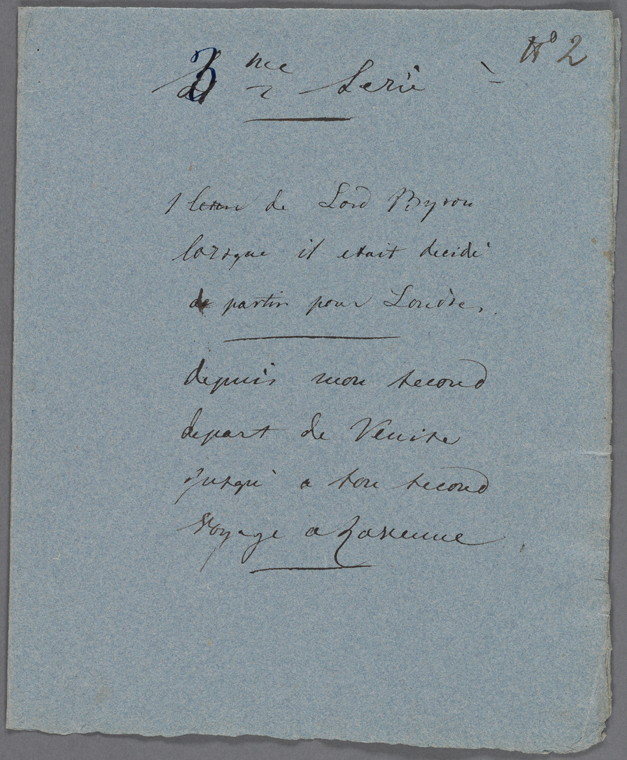 No 2
3me Serie
1 lettre de Lord Byron
lorsque il etait decidé
de partir pour Londre.
depuis mon second
depart de Venise
jusqu' a son second
Voyage a Ravenne